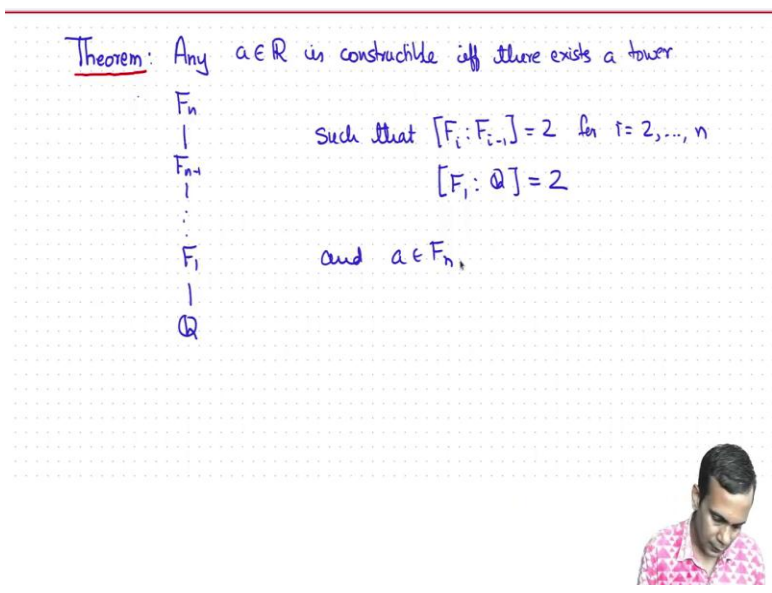 Theorem: Any a ∈ ℝ is constructible iff there exists a tower
Fₙ
|
Fₙ₋₁
|
⋮
F₁
|
ℚ
such that [Fᵢ : Fᵢ₋₁] = 2 for i = 2, ..., n
[F₁ : ℚ] = 2
and a ∈ Fₙ.